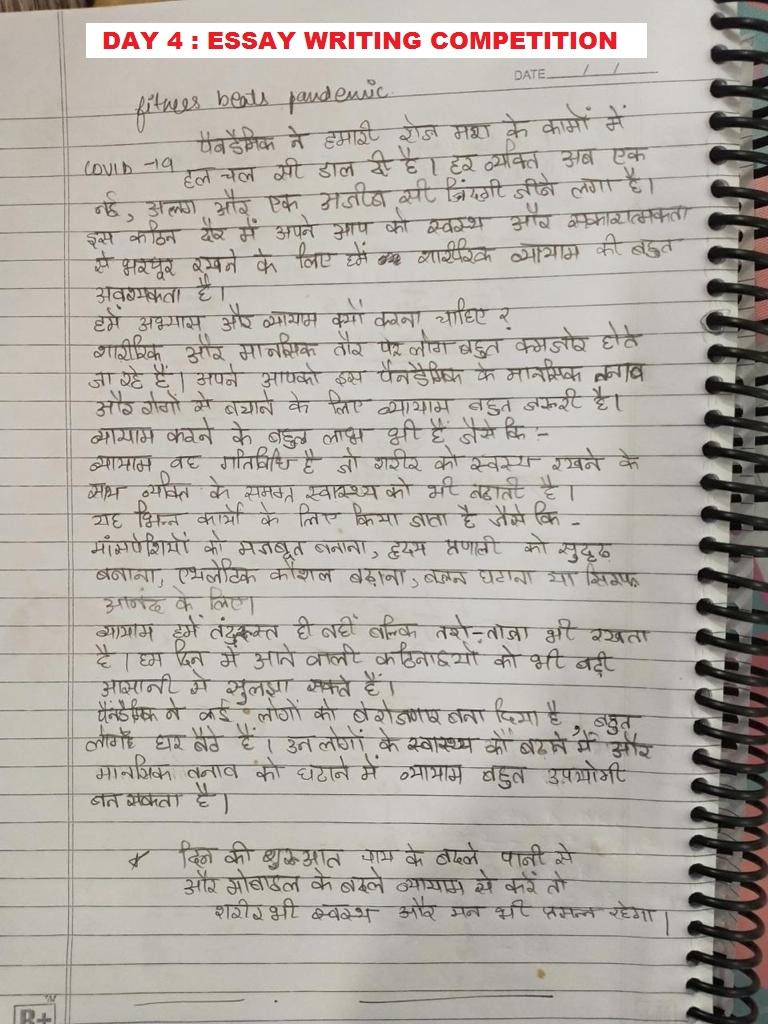 DAY 4 : ESSAY WRITING COMPETITION
DATE / /
fitness beats pandemic
पैनडैमिक ने हमारी रोज मरा के कामों में
COVID -19 हल चल सी डाल दी है। हर व्यक्ति अब एक
नई, अलग और एक अजीब सी जिंदगी जीने लगा है।
इस कठिन दौर में अपने आप को स्वस्थ और सकारात्मकता
से भरपूर रखने के लिए हमें शारीरिक व्यायाम की बहुत
अवश्यकता है।
हमें अभ्यास और व्यायाम क्यों करना चाहिए ?
शारीरिक और मानसिक तौर पर लोग बहुत कमजोर होते
जा रहे हैं। अपने आपको इस पैनडैमिक के मानसिक तनाव
और रोगों से बचाने के लिए व्यायाम बहुत जरूरी है।
व्यायाम करने के बहुत लाभ भी हैं जैसे कि :-
व्यायाम वह गतिविधि है जो शरीर को स्वस्थ रखने के
साथ व्यक्ति के समग्र स्वास्थ्य को भी बढाती है।
यह भिन्न कार्यों के लिए किया जाता है जैसे कि -
मांसपेशियों को मजबूत बनाना, हृदय प्रणाली को सुदृढ़
बनाना, एथलेटिक कौशल बढ़ाना, वजन घटाना या सिरफ
आनंद के लिए।
व्यायाम हमें तंदुरुस्त ही नहीं बल्कि तरो-ताजा भी रखता
है। हम दिन में आने वाली कठिनाइयों को भी बड़ी
आसानी से सुलझा सकते हैं।
पैनडैमिक ने कई लोगों को बेरोजगार बना दिया है, बहुत
लोग घर बैठे हैं। उन लोगों के स्वास्थ्य को बढाने में और
मानसिक तनाव को घटाने में व्यायाम बहुत उपयोगी
बन सकता है।
* दिन की शुरुआत चाय के बदले पानी से
और मोबाइल के बदले व्यायाम से करें तो
शरीर भी स्वस्थ और मन भी प्रसन्न रहेगा।
R+